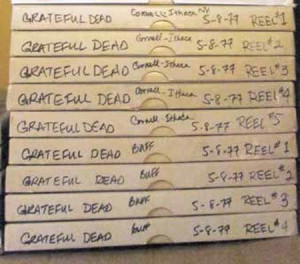 GRATEFUL DEAD Cornell-Ithaca NY 5-8-77 REEL #1
GRATEFUL DEAD Cornell-Ithaca 5-8-77 REEL #2
GRATEFUL DEAD Cornell-Ithaca 5-8-77 REEL #3
GRATEFUL DEAD Cornell-Ithaca 5-8-77 REEL #4
GRATEFUL DEAD Cornell-Ithaca 5-8-77 REEL #5
GRATEFUL DEAD BUFF 5-9-77 REEL #1
GRATEFUL DEAD BUFF 5-9-77 REEL #2
GRATEFUL DEAD BUFF 5-9-77 REEL #3
GRATEFUL DEAD BUFF 5-9-77 REEL #4